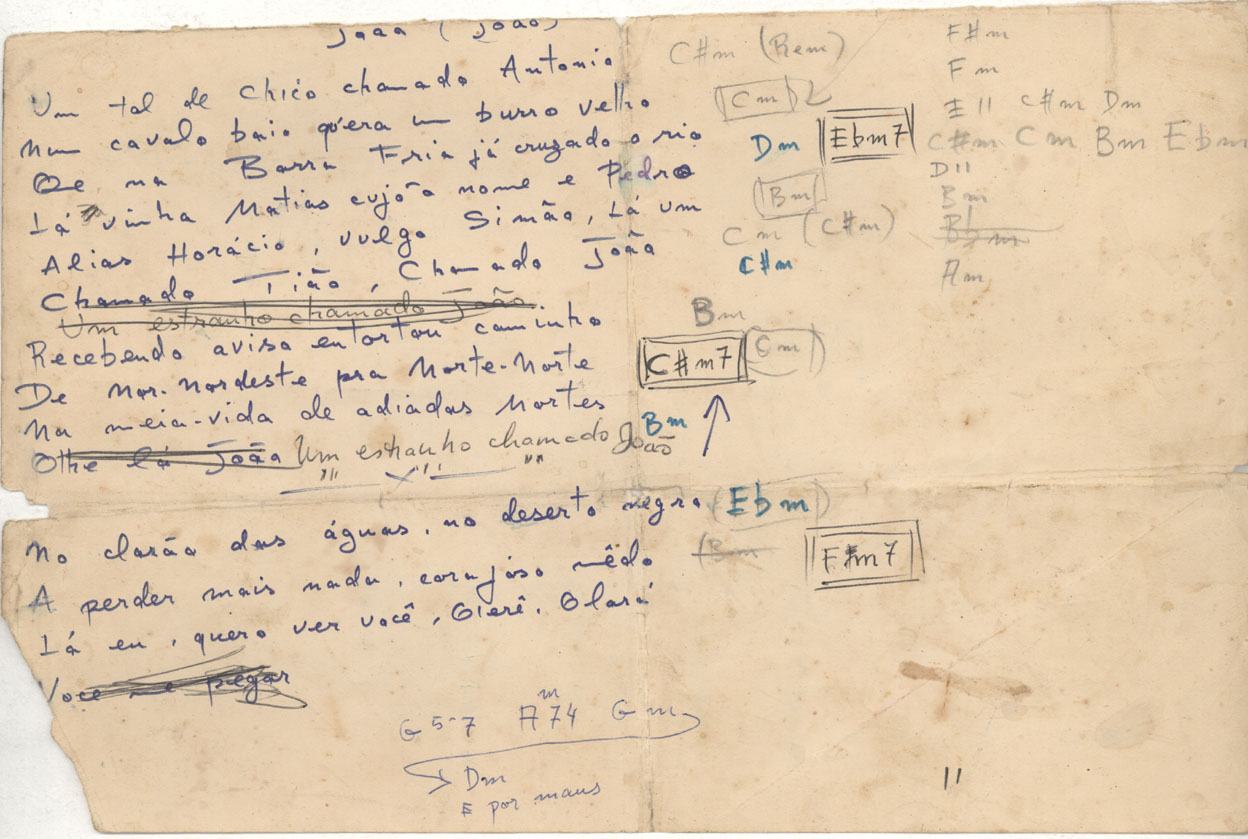 João (João)
Um tal de Chico chamado Antonio
Num cavalo baio qu'era um burro velho
Que na Barra Fria já cruzado o rio
Lá vinha Matias cujo o nome e Pedro
Alias Horácio, vulgo Simão, Lá um
Chamado Tião, Chamado João
Um estranho chamado João
Recebendo aviso entortou caminho
De Nor-nordeste pra Norte-Norte
Na meia-vida de adiadas Mortes
Olhe lá João Um estranho chamado João
No clarão das águas, no deserto negro
A perder mais nada, corajoso mêdo
Lá eu, quero ver você, Olerê, Olará
Voce me pegar
G 5-7 Am 74 Gm
Dm
E por maus
C#m (Rem)
Cm
Dm Ebm7
Bm
Cm (C#m)
C#m
Bm
C#m7 Cm
Bm
(Ebm)
(Bm
F#m7
F#m
Fm
E11 C#m Dm
C#m Cm Bm Ebm
D11
Bm
Bbm
Am
11